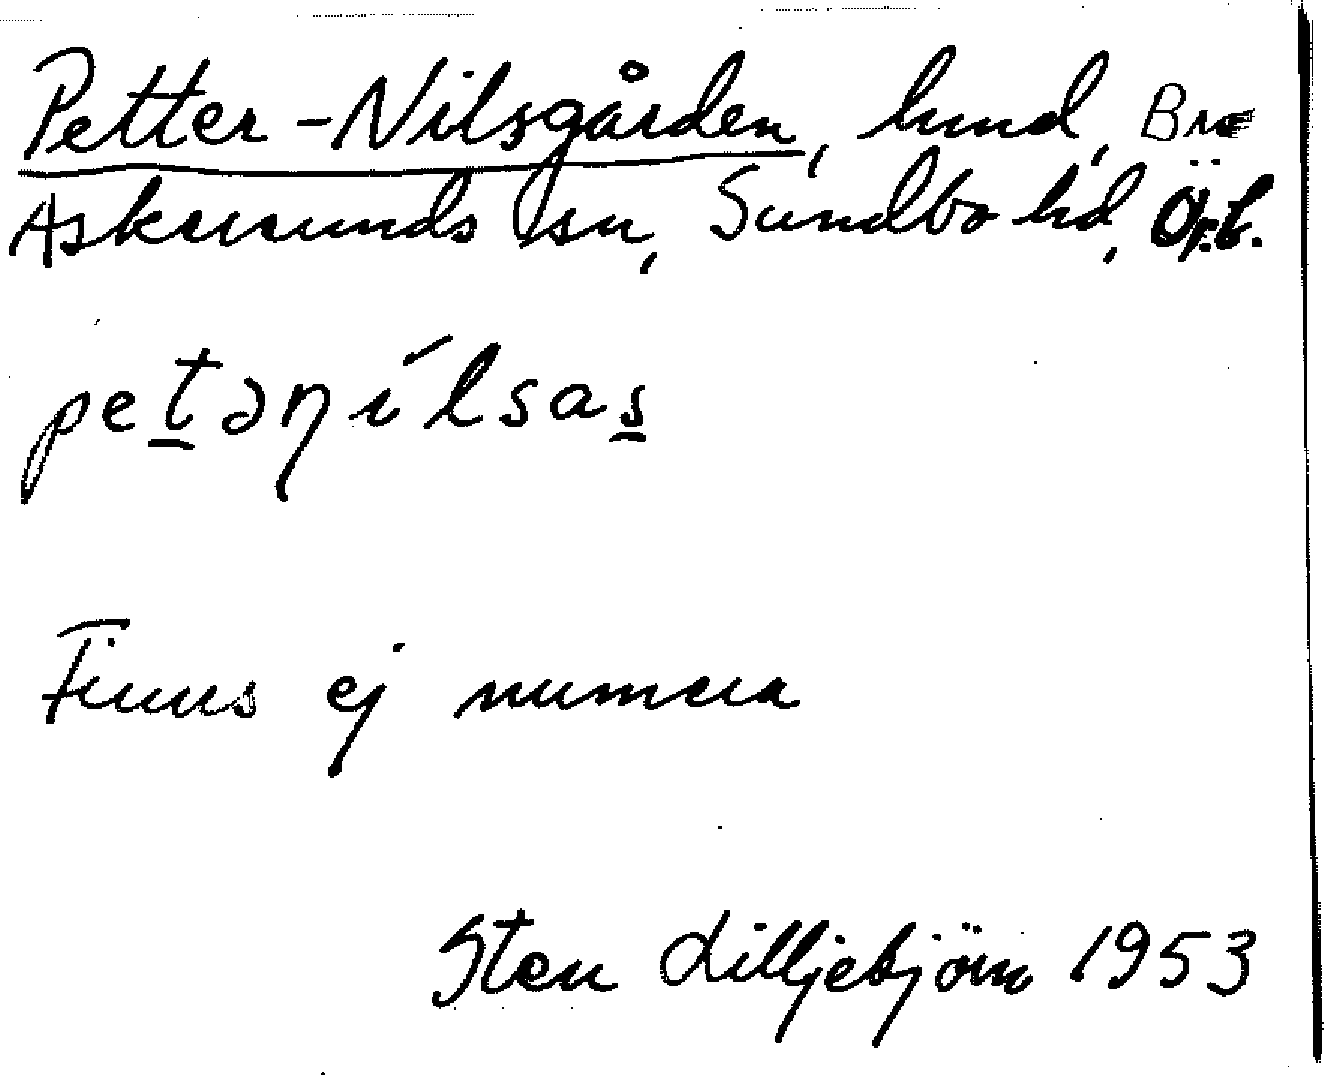 Petter-Nilsgården, hmd, Bro
Askersunds lsn, Sundbo hd, Ör.l.
petəηílsas
Finns ej numera
Sten Lilljebjörn 1953